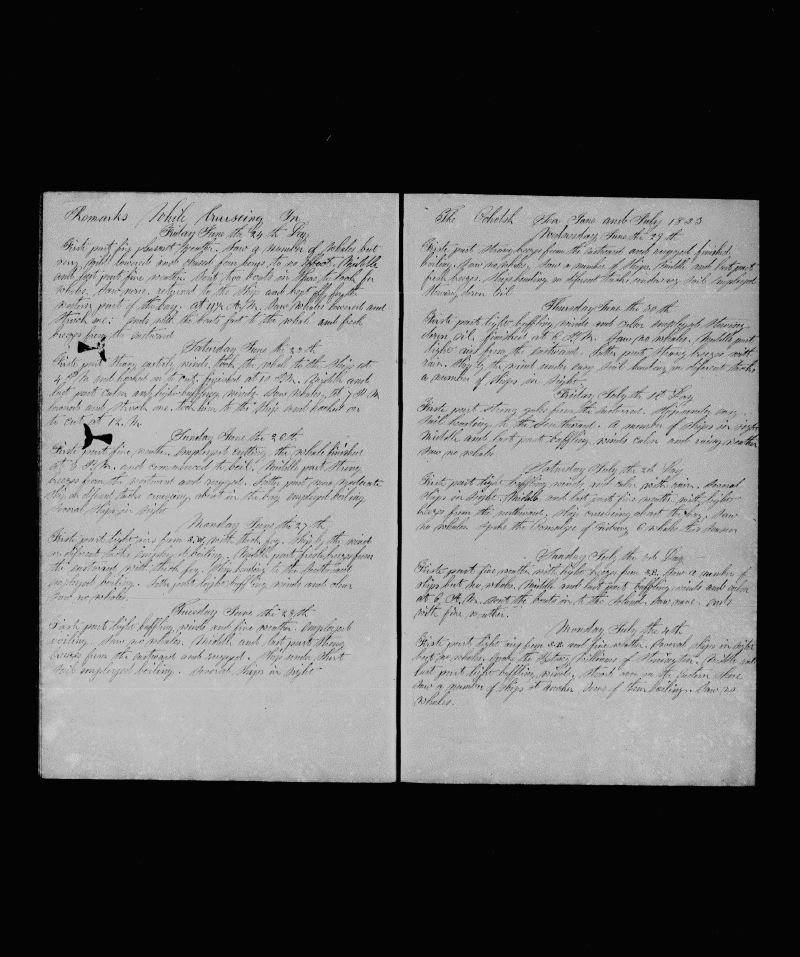 Remarks While Cruiseing In
Friday June the 24th Day
First part fine pleasant weather. Saw a number of whales but
very wild lowered and chased four boys to no effect. Middle
and last part fine weather. Sent two boats in shore to look for
whales. Saw none. returned to the ship and kept off for the
western part of the bay. at 11½ A.M. Saw whales lowered and
struck one: ends with the boats fast to the whale and fresh
breezes from the eastward
Saturday June the 25th
First part strong westerly winds, took the whale to the ship at
4 P.M and hooked on to cut. finished at 10 P.M. Middle and
last part calm and light baffling winds. Saw whales, at 7 A.M
lowered and struck one. took him to the ship and hooked on
to cut at 12. M
Sunday June the 26th
First part fine weather. Employed cutting the whale finished
at 5 P.M. and commenced to boil. Middle part strong
breezes from the westward and rugged. Latter part more moderate
Ship on different tacks cruising about in the bay employed boiling
several ships in sight
Monday June the 27th
First part light airs from S.W. with thick fog. Ship by the wind
on different tacks employed boiling. Middle part fresh breezes from
the eastward with thick fog. Ship heading to the Northward
employed boiling. Latter part light baffling winds and clear
Saw no whales
Tuesday June the 28th
First part light baffling winds and fine weather. Employed
boiling. Saw no whales. Middle and last part strong
breezes from the eastward and rugged. Ship under short
sail employed boiling. Several ships in sight
The Ochotsk Sea June and July 1853
Wednesday June the 29th
First part strong breezes from the eastward and rugged finished
boiling. Saw no whales. Saw a number of ships. Middle and last part
fresh breezes. Ship heading on different tacks under easy sail employed
stowing down oil
Thursday June the 30th
First part light baffling winds and calm employed stowing
down oil. finished at 6 P.M. Saw no whales. Middle part
light airs from the eastward. Latter part strong breezes with
rain. Ship by the wind under easy sail heading on different tacks
a number of ships in sight
Friday July the 1st Day
First part strong gales from the eastward. Ship under easy
sail heading to the Southward. A number of ships in sight
Middle and last part baffling winds calm and rainy weather
Saw no whales
Saturday July the 2d Day
First part light baffling winds and calm with rain. several
ships in sight. Middle and last part fine weather with light
breezes from the northward. Ship cruiseing about the bay. Saw
no whales. Spoke the of 6 whales this season
Sunday July the 3d Day
First part fine weather with light breezes from S.E. Saw a number of
ships but no whales. Middle and last part baffling winds and calm
at 6 A.M. sent the boats in to the Island. Saw none. ends
with fine weather
Monday July the 4th
First part light airs from S.E. and fine weather. Several ships in sight
but no whales. Spoke the of Stonington. Middle and
last part light baffling winds. Stood over on the western shore
Saw a number of ships at anchor some of them boiling. Saw no
whales.